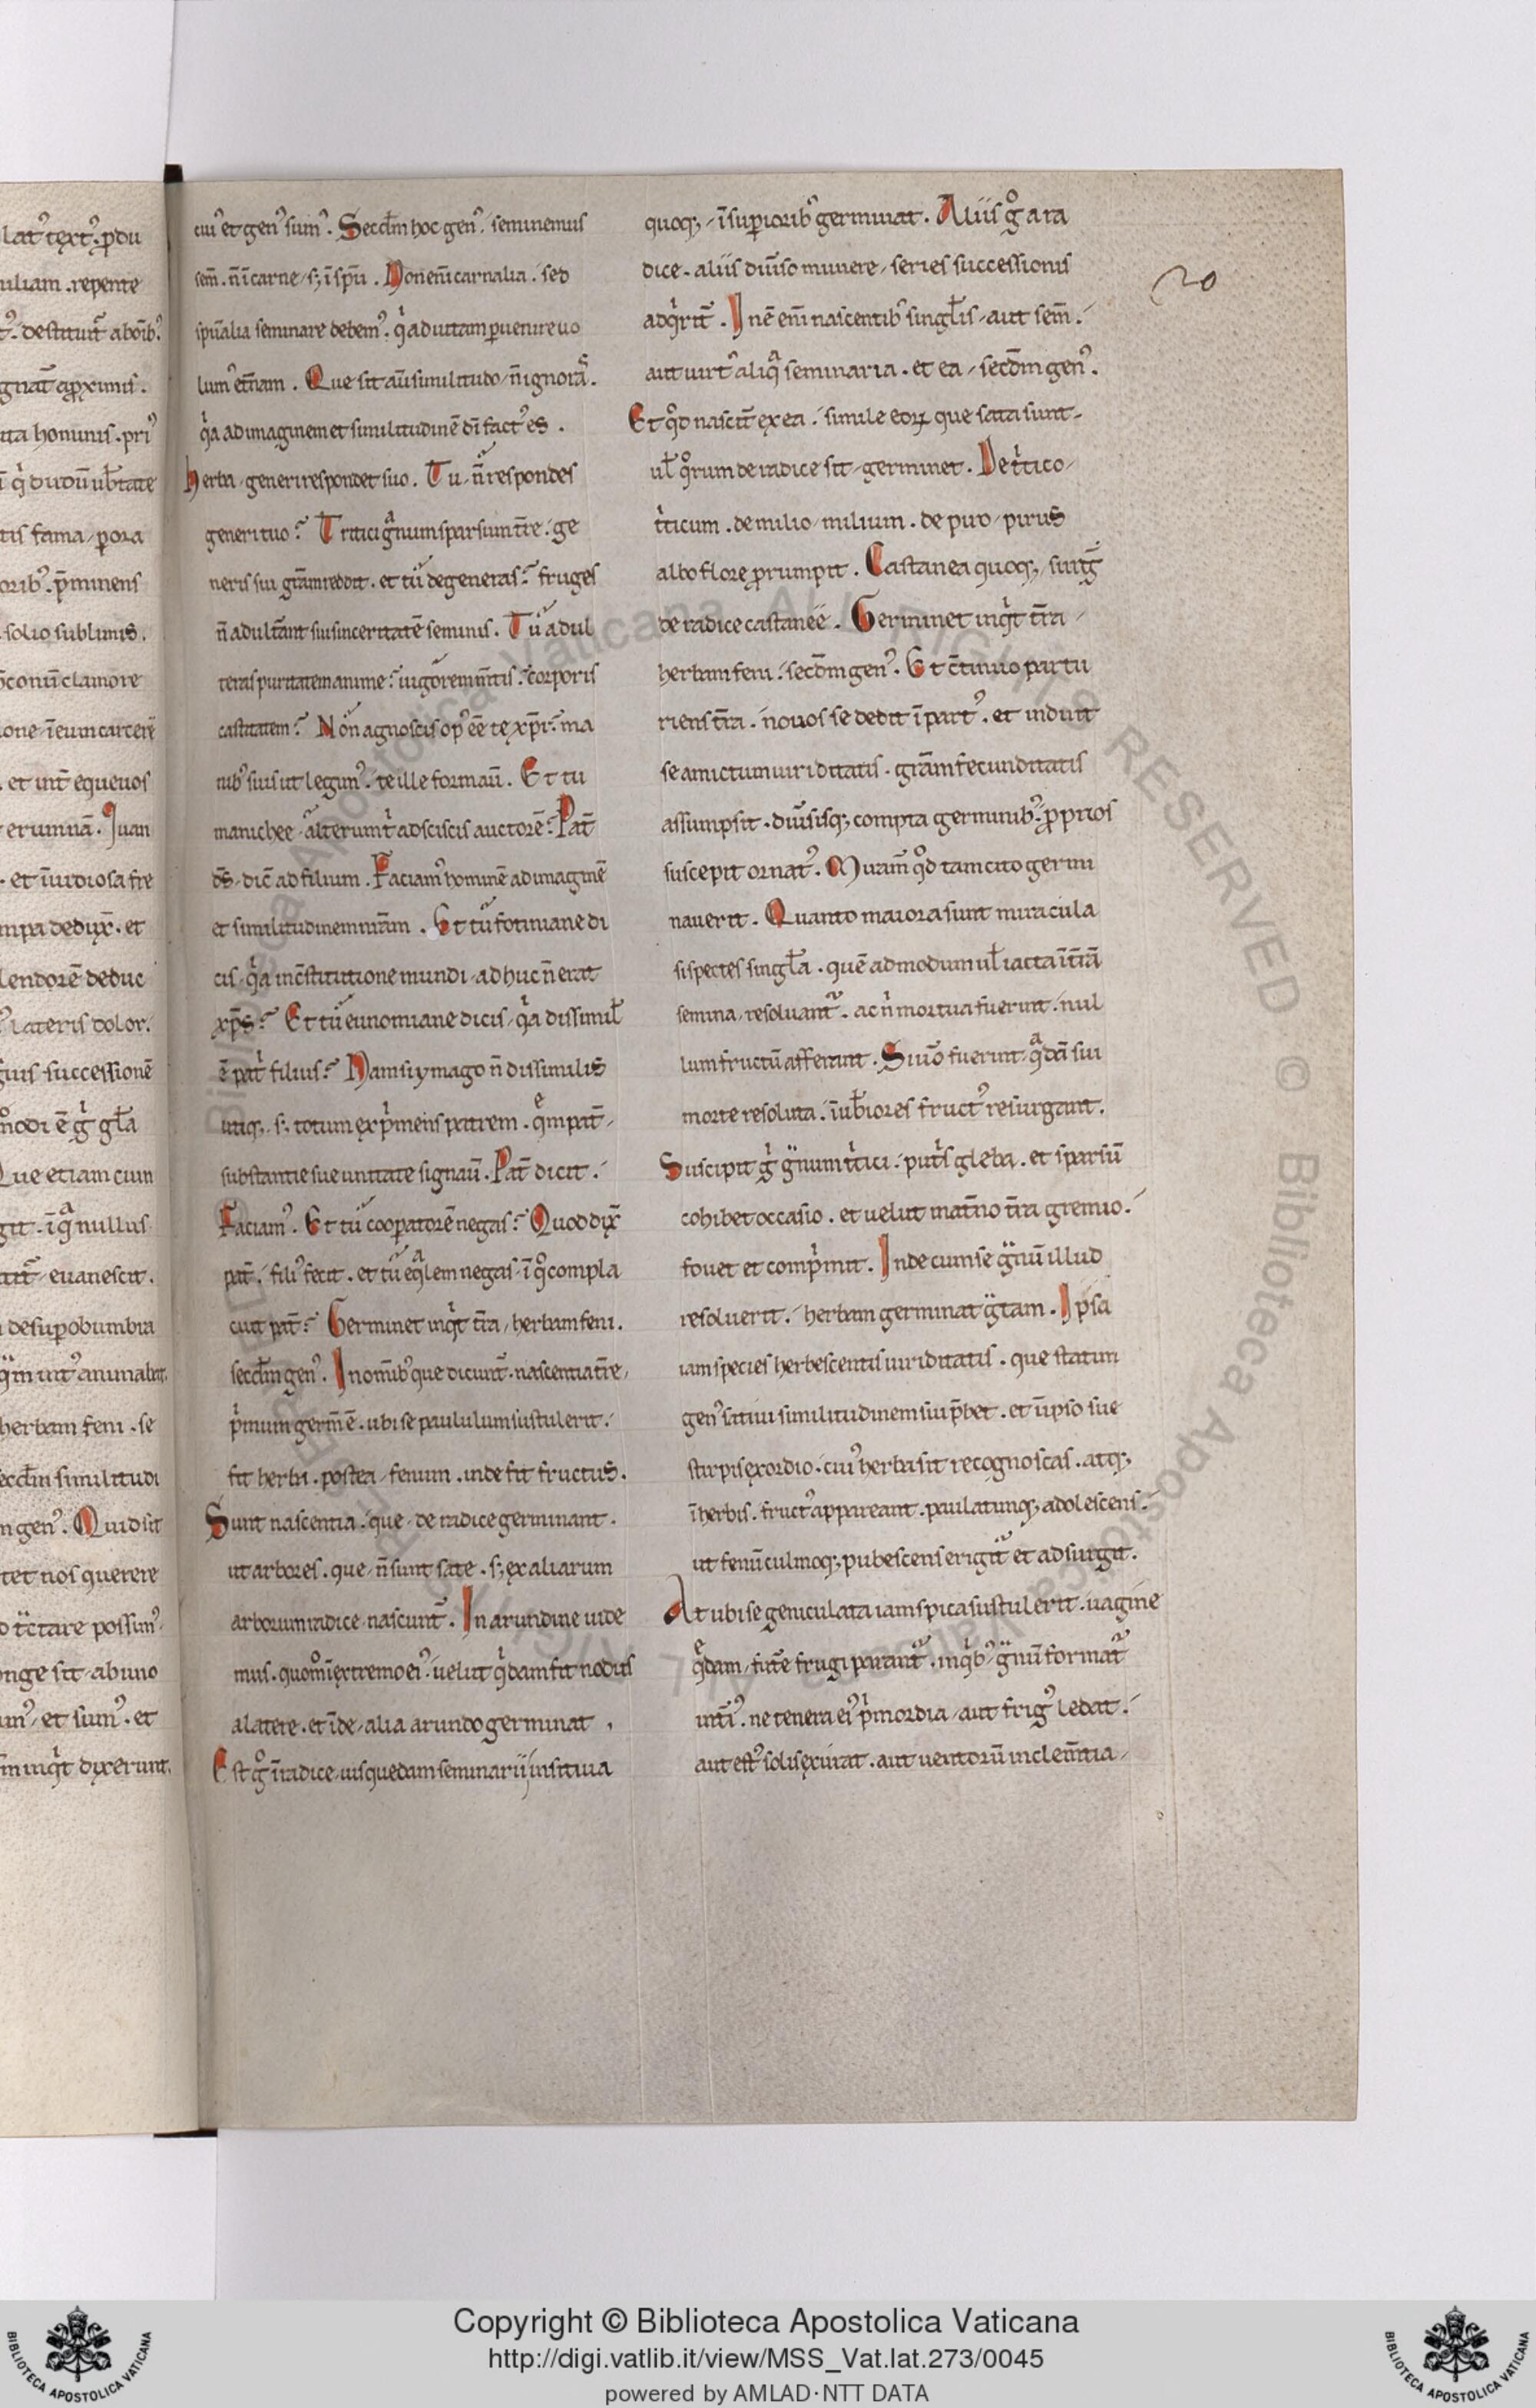 lat᷒ text᷒. ꝑdu
uiliam . repente
t᷒. destituit᷑ ab oīb᷒.
gnat᷑ a ꝓximis .
ita hominis . pri᷒
tis fama / ꝑ ora
orib᷒ . p̄minens
. solio sublimis .
conuīc clamore
ione / ī eum carcerē
. et int̄ equeuos
erumnā . Iuan
. et ī inuidiosa fre
mpa dedux̄ . et
lendorē deduc
᷒ lateris dolor .
successionē
modi ē gͥ gl̄a
Que etiam cum
git . ī qͣ nullus
euanescit .
desuꝑ obumbra
herbam feni . se
ecđm similitudi
m gen᷒ . Quid sit
tet nos querere
tͨctare possim᷒ .
onge sit / ab uno
um᷒ / et sum᷒ . et
m inqͥt dixerunt .
cui᷒ et gen᷒ sum᷒ . Secđm hoc gen᷒ / seminemus
sem̄ . n̄ ī carne / s; ī sp̄u . Non enī carnalia . sed
spūalia seminare debem᷒ . qͥ ad uitam ꝑuenire uo
lum᷒ et̄nam . Que sit aū similitudo / n̄ ignoraˢ .
qͥa ad imaginem et similitudinē dī fact᷒ es .
Herba / generi respondet suo . Tu / n̄ respondes
generi tuo ? Tritici gͣnum sparsum t̄re / ge
neris sui grām reddit . et tu degeneras ? fruges
n̄ adult̄ant sui sinceritatē seminis . Tu adul
teras puritatem anime ? uigorem m̄tis ? corporis
castitatem ? Non agnoscis op᷒ ēē te xp̄i ? ma
nib᷒ suis ut legim᷒ / te ille formau̅ . Et tu
manichee / alterum tͥ adsciscis auctorē ? Pat̄
đs / dic̄ ad filium . Faciam᷒ hominē ad imaginē
et similitudinem nr̄am . Et tu fotiniane di
cis / qͥa in c̄stitutione mundi / adhuc n̄ erat
xp̄s ? Et tu eunomiane dicis / qͥa dissimil̄
ē patͥ filius ? Nam si ymago n̄ dissimilis
utiq; / s; totum exp̄mens patrem . quem pat̄ /
substantie sue unitate signau̅ . Pat̄ dicit /
Faciam᷒ . Et tu cooꝑatorē negas ? Quod dix̄
pat̄ / fili᷒ fecit . et tu eqͣlem negas / ī qͦ compla
cuit pat̄ ? Germinet inqͥt t̄ra / herbam feni .
secđm gen᷒ . In om̄ib᷒ que dicunt᷑ . nascentia t̄re /
pͥmum germē . ubi se paululum sustulerit /
fit herba . postea / fenum . inde fit fructus .
Sunt nascentia / que / de radice germinant .
ut arbores . que / n̄ sunt sate . s; ex aliarum
arborum radice / nascunt᷑ . In arundine uide
mus . quom̄ ī extremo ei᷒ / uelut qͥdam fit nodus
a latere . et īde / alia arundo germinat .
Est gͦ ī radice / uis quedam seminarii / insitiua
quoq; / ī suꝑiorib᷒ germinat . Aliis gͦ a ra
dice . aliis diuso munere / series successionis
adqͥrit᷑ . Inē enī nascentib᷒ singl̄is / aut sem̄ /
aut uirt᷒ aliqͣ seminaria . et ea / secđm gen᷒ .
Et qͦd nascit᷑ ex ea / simile eoꝝ que sata sunt /
ul̄ qͦrum de radice sit / germinet . De tͥtico /
tͥticum . de milio / milium . de piro / pirus
albo flore ꝓrumpit . Castanea quoq; / surgͥt
de radice castanee . Germinet inqͥt t̄ra /
herbam feni / secđm gen᷒ . Et c̄tinuo partu
riens t̄ra . nouos se dedit ī part᷒ . et induit
se amictum uiriditatis . grām fecunditatis
assumpsit . diuisisq; compta germinib᷒ / ꝓprios
suscepit ornat᷒ . Miram᷑ qͦd tam cito germi
nauerit . Quanto maiora sunt miracula
si spectes singl̄a . quē admodum ul̄ iacta ī t̄rā
semina / resoluant᷑ . ac nͥ mortua fuerint / nul
lum fructū afferant . Si uō fuerint qͣdā sui
morte resoluta / ī ub̄iores fruct᷒ resurgant .
Suscipit gͥ gͣnum tͥtici / putͥs gleba . et sparsū
cohibet occasio . et uelut mat̄no t̄ra gremio /
fouet et compͥmit . Inde cum se gͣnū illud
resoluerit / herbam germinat gͣtam . Ipsa
iam species herbescentis uiriditatis . que statim
gen᷒ satiui similitudinem sui p̄bet . et ī ipso sue
stirpis exordio . cui᷒ herba sit recognoscas . atq;
ī herbis . fruct᷒ appareant . paulatimq; adolescens /
ut fenū culmoq; pubescens erigit᷑ et adsurgit .
At ubi se geniculata iam spica sustulerit . uagine
qͤdam / future frugi parant᷑ . in qͥb᷒ / gͣnū format᷑
inti᷒ . ne tenera ei᷒ pͥmordia / aut frig᷒ ledat /
aut est᷒ solis exurat . aut uentorū inclem̄tia /
20
Copyright © Biblioteca Apostolica Vaticana
http://digi.vatlib.it/view/MSS_Vat.lat.273/0045
powered by AMLAD·NTT DATA
BIBLIOTECA APOSTOLICA VATICANA
BIBLIOTECA APOSTOLICA VATICANA